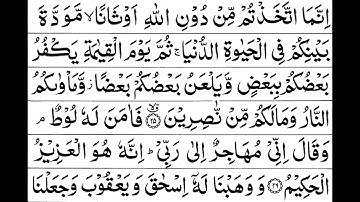 اِنَّمَا اتَّخَذْتُمْ مِّنْ دُوْنِ اللّٰهِ اَوْثَانًا ۙ مَّوَدَّةَ
بَيْنِكُمْ فِى الْحَيٰوةِ الدُّنْيَا ۚ ثُمَّ يَوْمَ الْقِيٰمَةِ يَكْفُرُ
بَعْضُكُمْ بِبَعْضٍ وَّيَلْعَنُ بَعْضُكُمْ بَعْضًا ؗ وَّمَاْوٰىكُمُ
النَّارُ وَمَا لَكُمْ مِّنْ نّٰصِرِيْنَ ۝۲۵ فَاٰمَنَ لَهٗ لُوْطٌ ۘ
وَقَالَ اِنِّىْ مُهَاجِرٌ اِلٰى رَبِّىْ ؕ اِنَّهٗ هُوَ الْعَزِيْزُ
الْحَكِيْمُ ۝۲۶ وَوَهَبْنَا لَهٗۤ اِسْحٰقَ وَيَعْقُوْبَ وَجَعَلْنَا